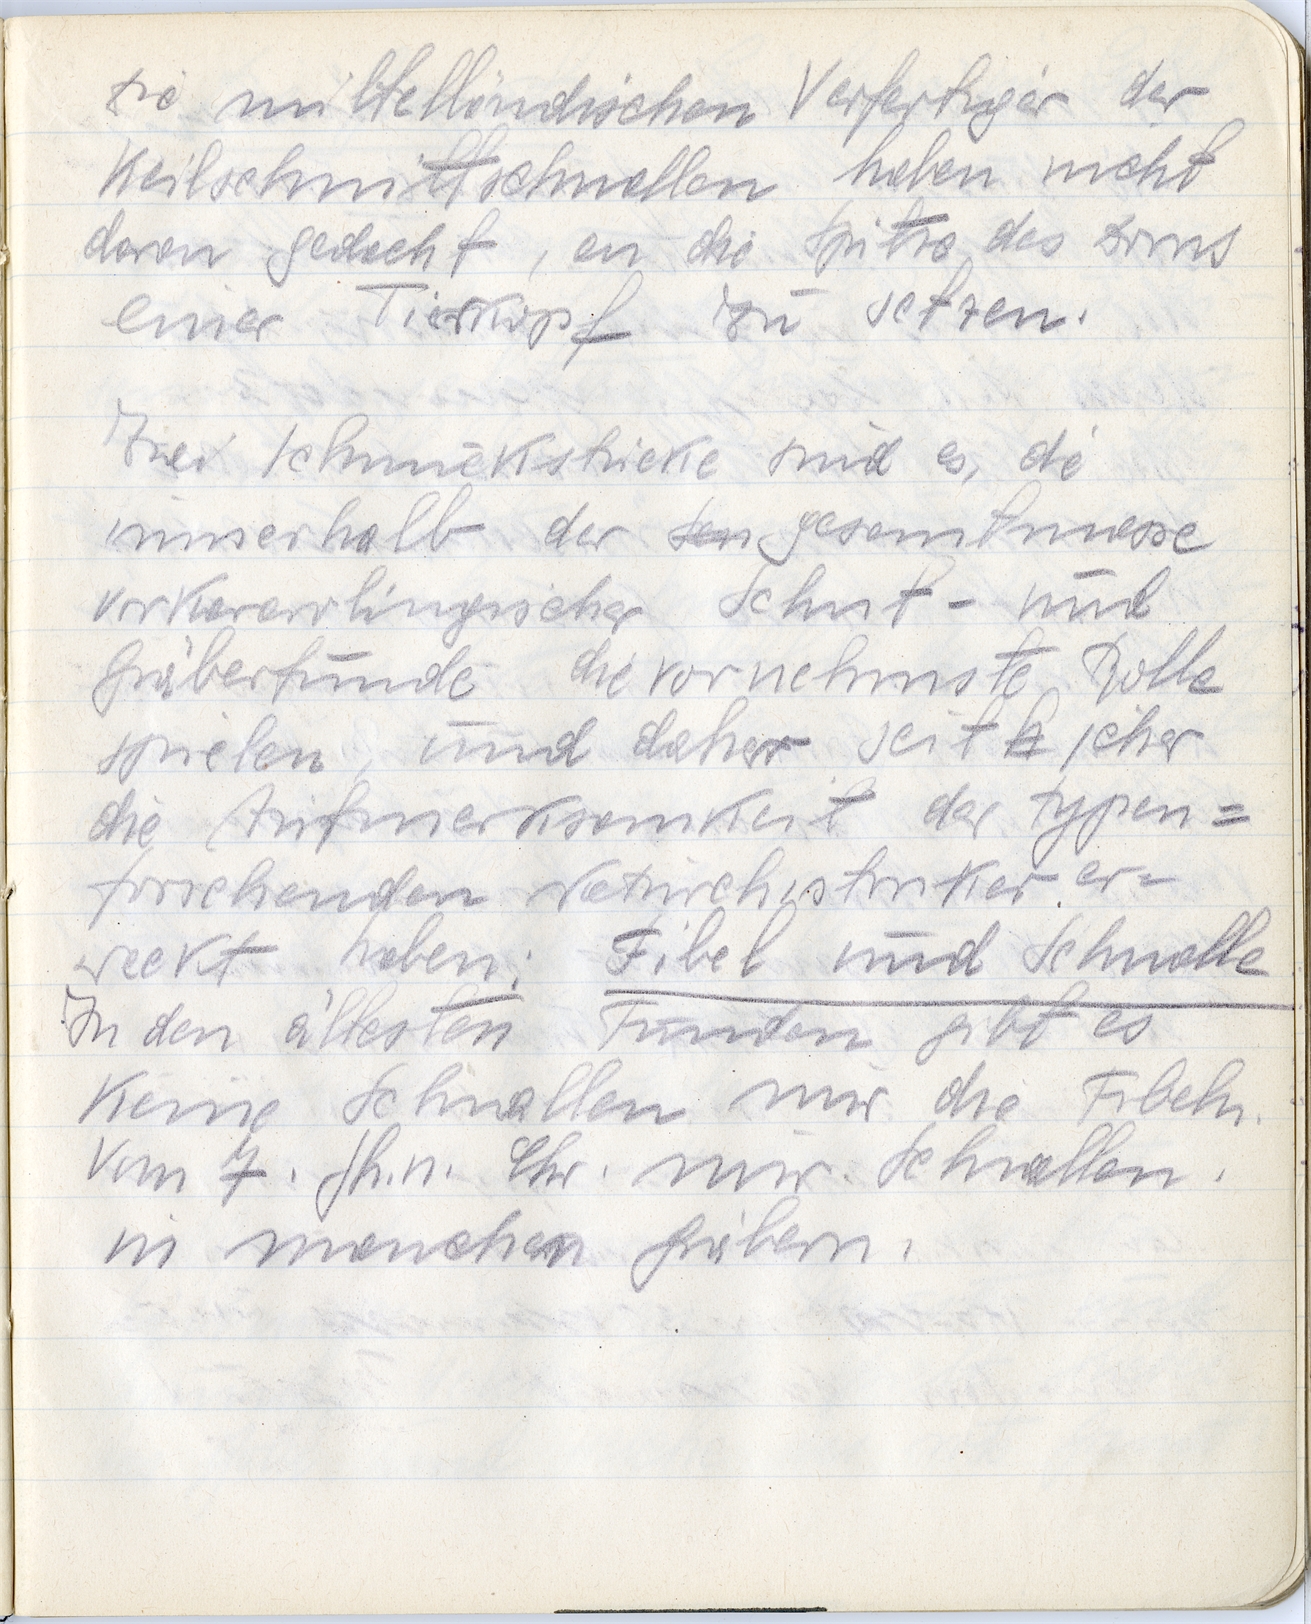 die mittelländischen Verfertiger der
Keilschnittschnallen haben nicht
daran gedacht, an die Spitze des Dorns
einer Tierkopf zu setzen.
Zwei Schmuckstücke sind es, die
innerhalb der Gesamtmasse
vorkarolingischer Schatz- und
Gräberfunde die vornehmste Rolle
spielen, und daher seit jeher
die Aufmerksamkeit der typen=
forschenden Naturhistoriker er=
weckt haben: Fibel und Schnalle
In den ältesten Funden gibt es
keine Schnallen nur die Fibeln.
Vom 7. Jh. n. Chr. nur Schnallen.
in manchen Gräbern.